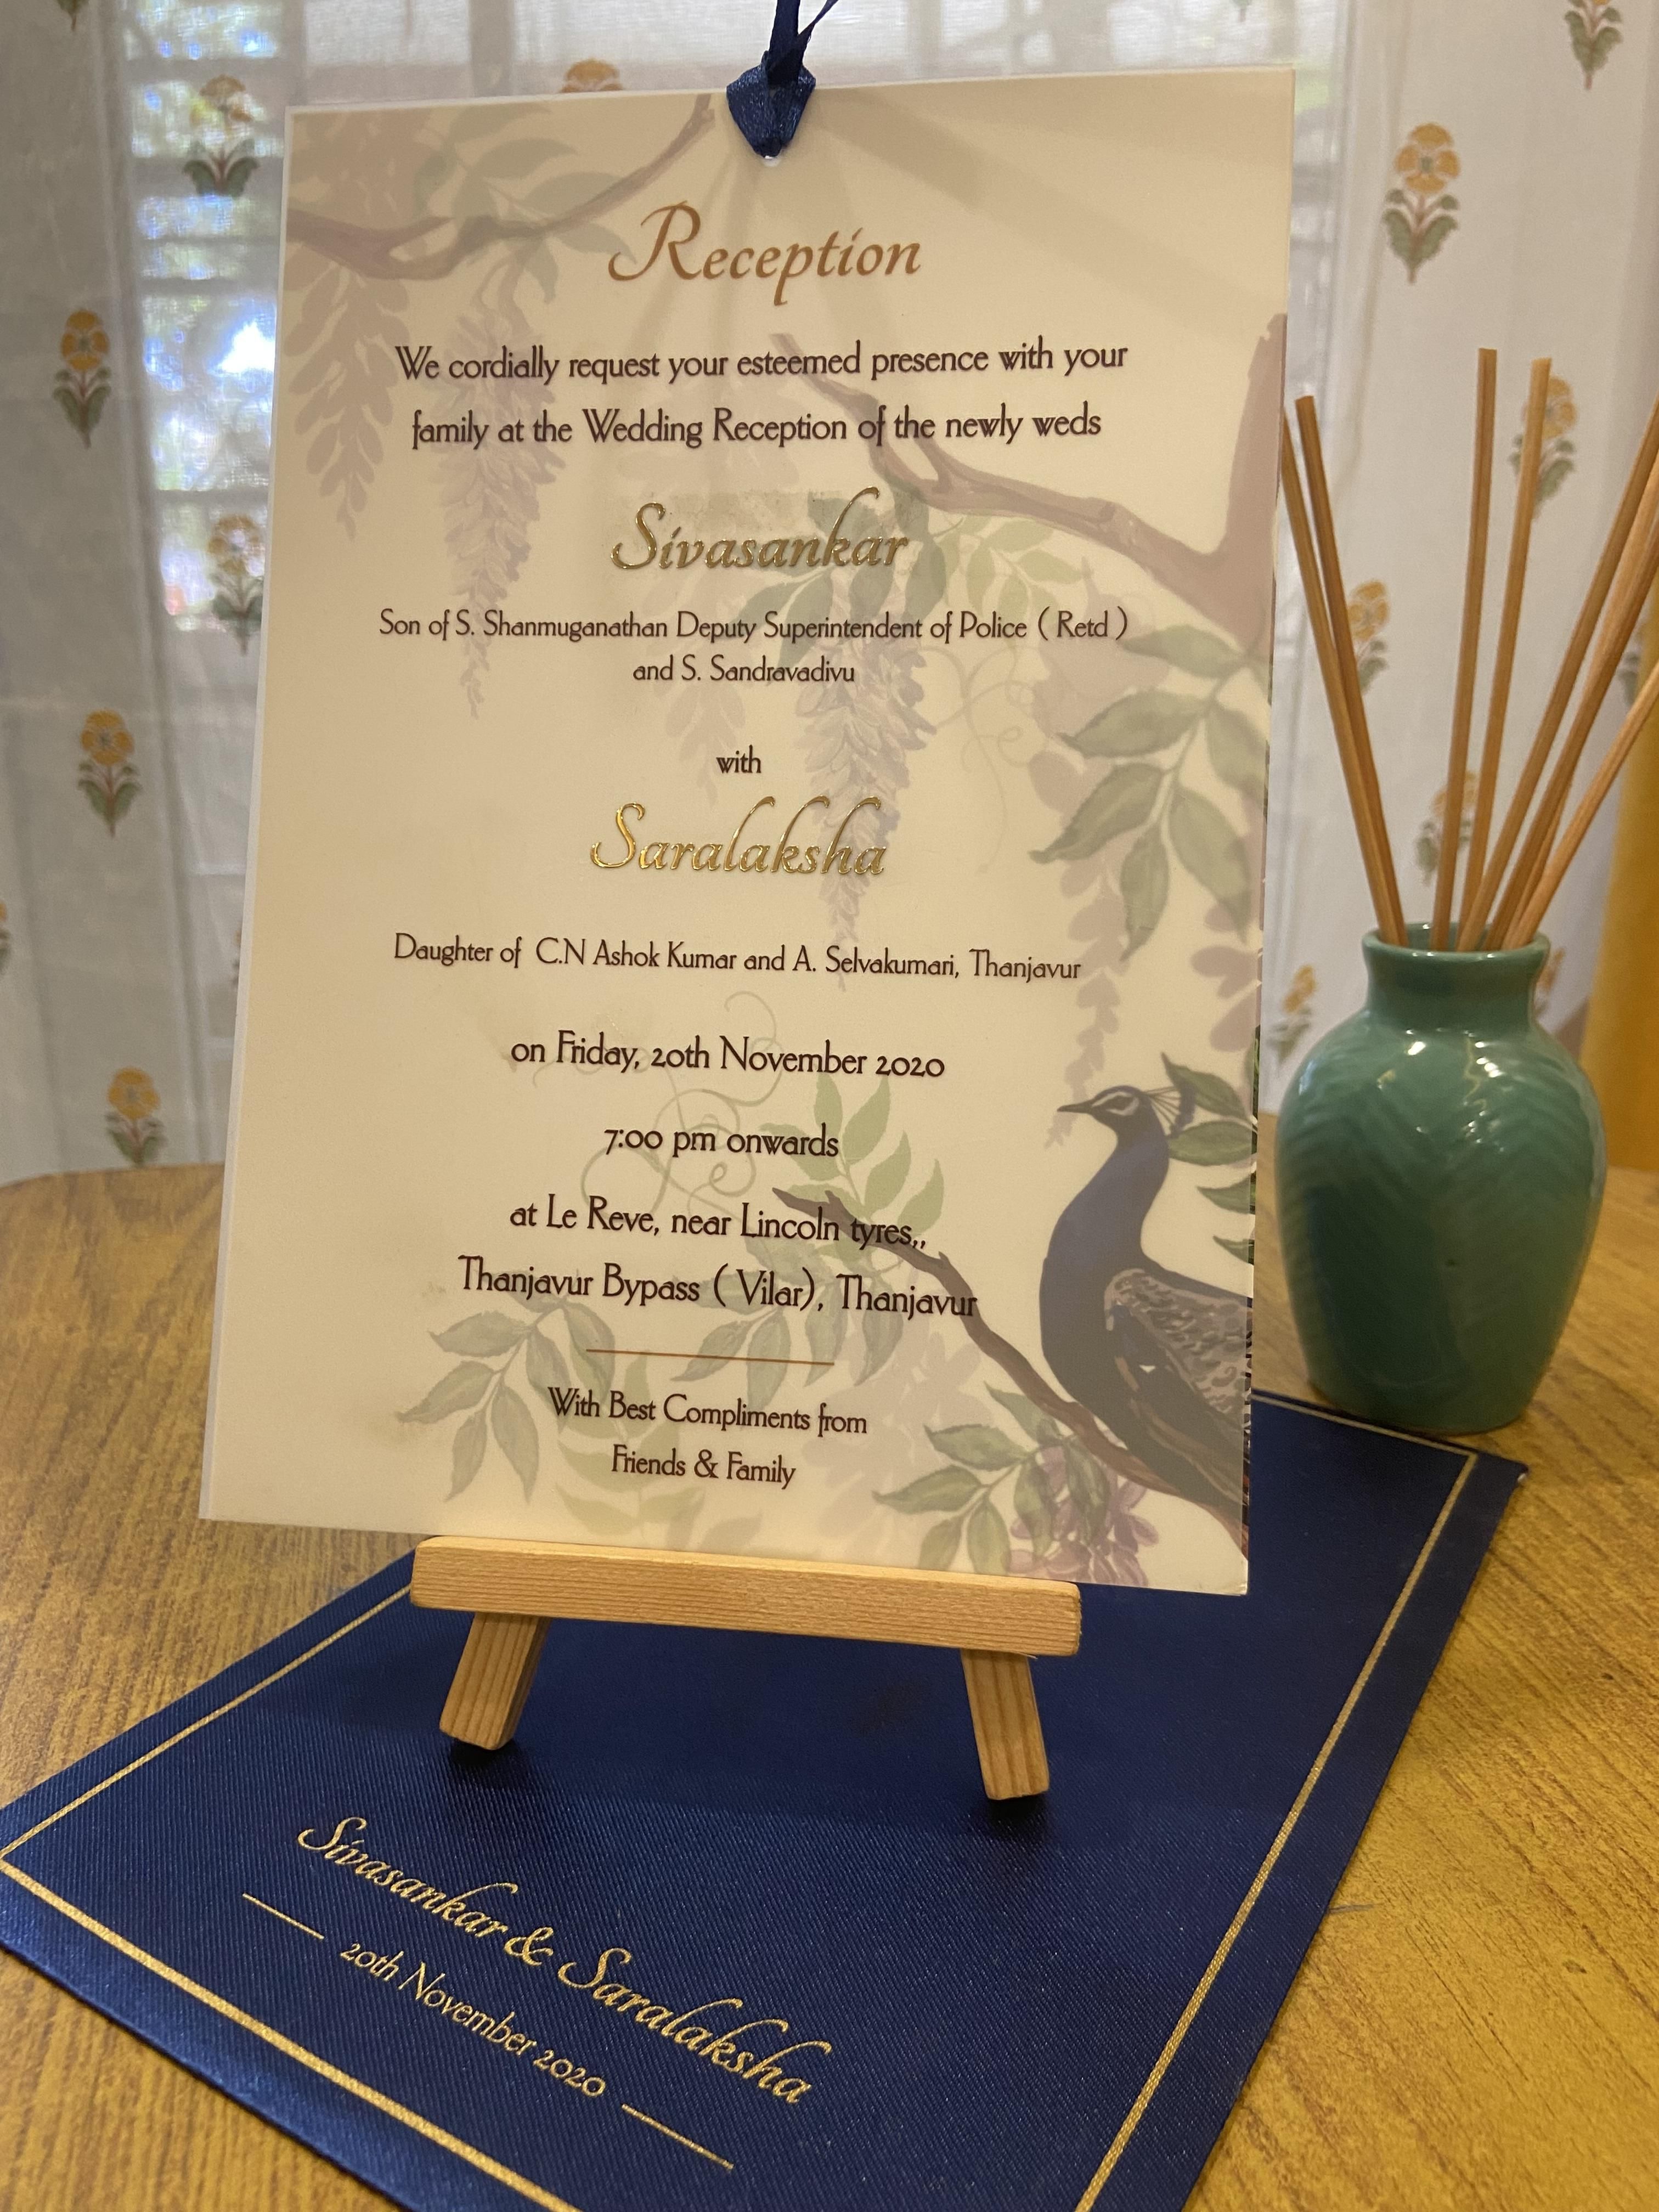 Reception
We cordially request your esteemed presence with your
family at the Wedding Reception of the newly weds
Sivasankar
Son of S. Shanmuganathan Deputy Superintendent of Police ( Retd )
and S. Sandravadivu
with
Saralaksha
Daughter of C.N Ashok Kumar and A. Selvakumari, Thanjavur
on Friday, 20th November 2020
7:00 pm onwards
at Le Reve, near Lincoln tyres,,
Thanjavur Bypass ( Vilar), Thanjavur
With Best Compliments from
Friends & Family
Sivasankar & Saralaksha
20th November 2020